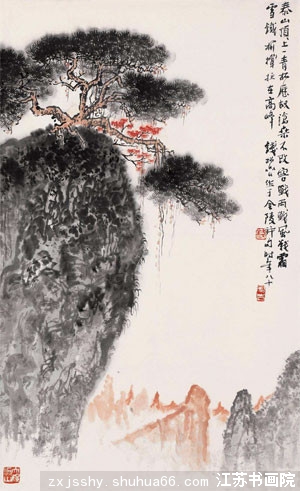 泰山頂上一青松歷滄桑不改容戰雨戰風戰霜
雪鐵高峰 錢松嵒作于金陵并句時年八十
zxjssshy.shuhua66.com 江苏书画院